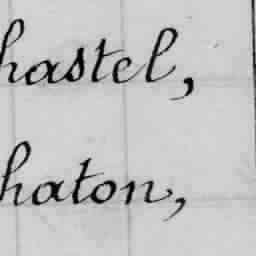 hastel,
haton,